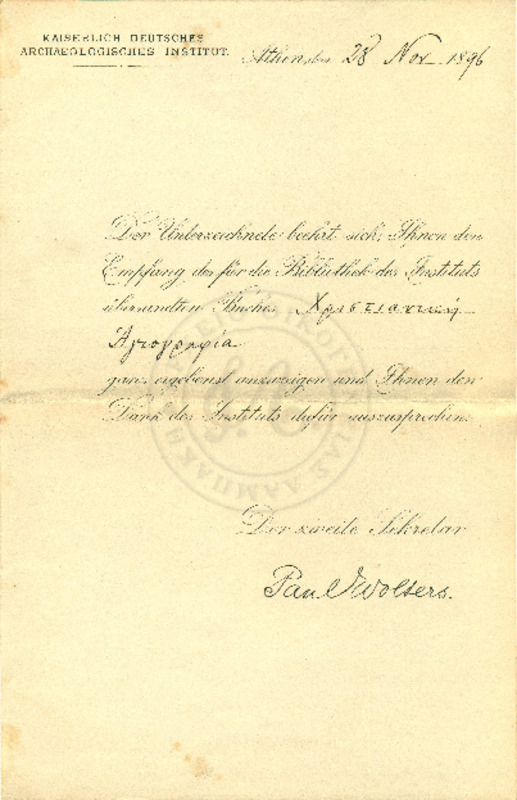 KAISERLICH DEUTSCHES
ARCHAEOLOGISCHES INSTITUT.
Athen, den 28 Nov 1896
Der Unterzeichnete beehrt sich, Ihnen den
Empfang des für die Bibliothek des Instituts
übersandten Buches, Χριστιανική
Ἁγιογραφία
ganz ergebenst anzuzeigen und Ihnen den
Dank des Instituts dafür auszusprechen.
Der zweite Sekretar
Paul Wolters.